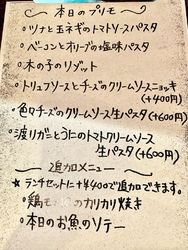 ~ 本日のプリモ ~
・ツナと玉ネギのトマトソースパスタ
・ベーコンとオリーブの塩味パスタ
・木の子のリゾット
・トリュフソースとチーズのクリームソースニョッキ
(+400円)
・色々チーズのクリームソース生パスタ(+600円)
・渡リガニとうにのトマトクリームソース
生パスタ(+600円)
~ 追加メニュー ~
★ ランチセットに+¥400で追加できます。
・鶏モモ のカリカリ焼き
・本日のお魚のソテー